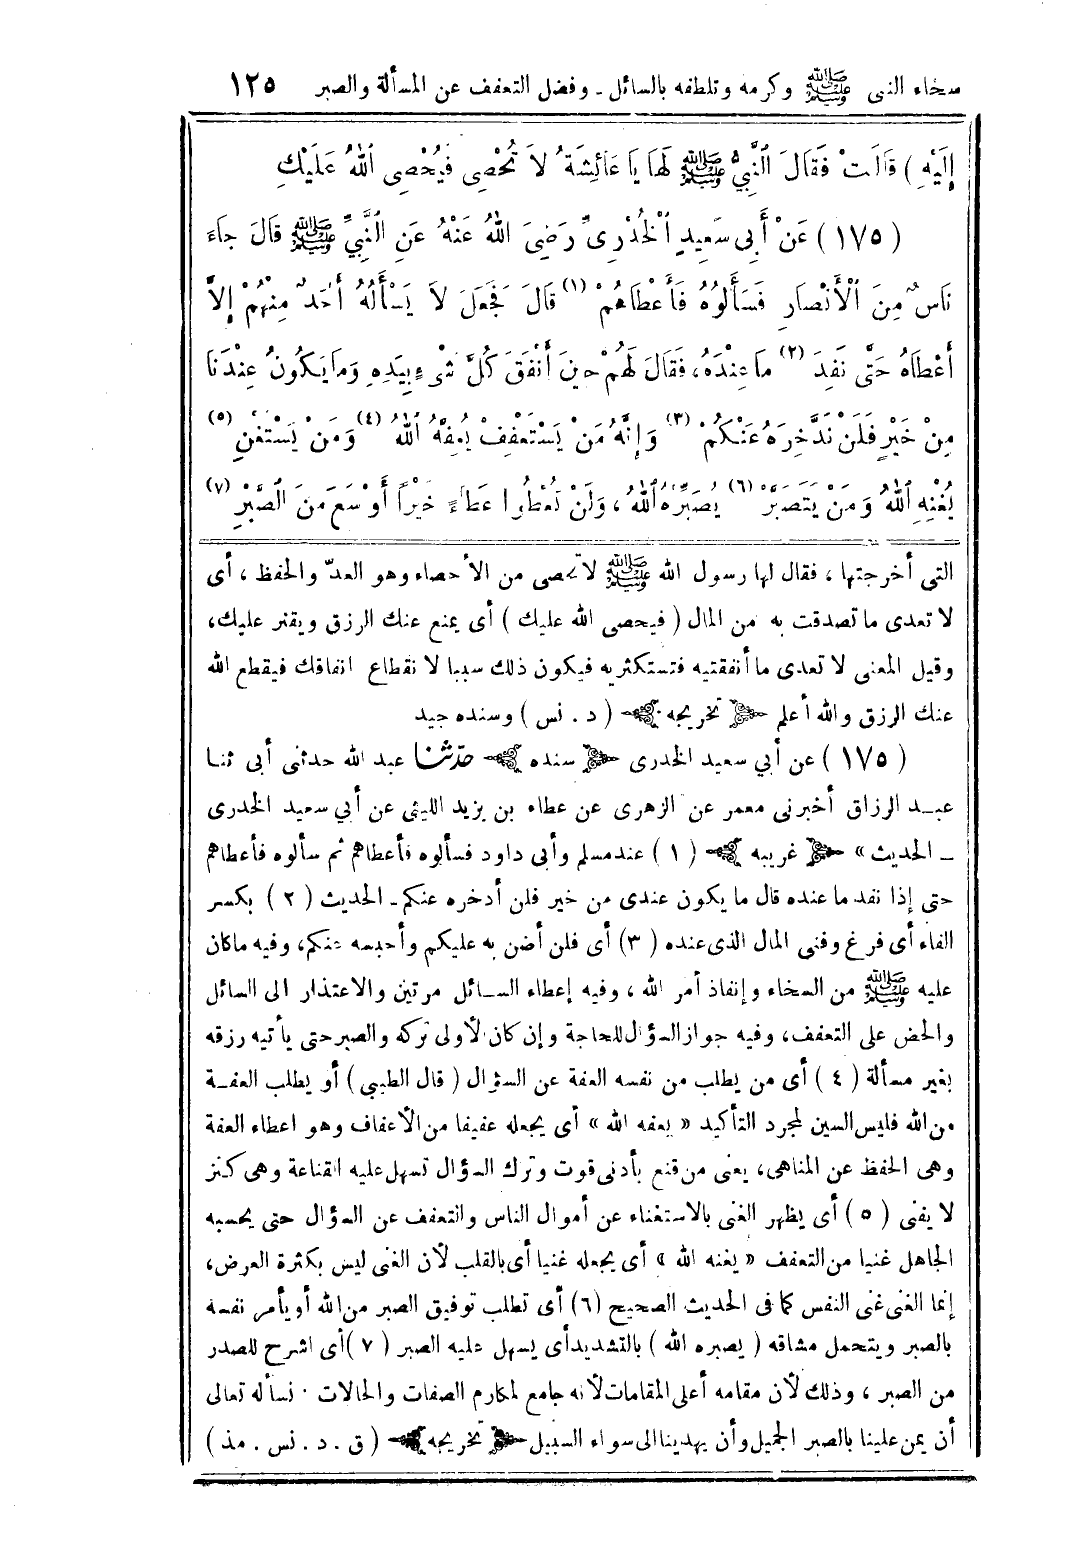 سخاء النبى ﷺ وكرمه وتلطفه بالسائل ـ وفضل التعفف عن المسألة والصبر ١٢٥
إِلَيْهِ ) قَالَتْ فَقَالَ النَّبِيُّ ﷺ لَهَا يَا عَائِشَةُ لاَ تُحْصِى فَيُحْصِىَ اللهُ عَلَيْكِ
( ١٧٥ ) عَنْ أَبِى سَعِيدٍ الْخُدْرِىِّ رَضِىَ اللهُ عَنْهُ عَنِ النَّبِيِّ ﷺ قَالَ جَاءَ
نَاسٌ مِنَ الْأَنْصَارِ فَسَأَلُوهُ فَأَعْطَاهُمْ (١) قَالَ فَجَعَلَ لاَ يَسْأَلُهُ أَحَدٌ مِنْهُمْ إِلاَّ
أَعْطَاهُ حَتَّى نَفِدَ (٢) مَا عِنْدَهُ، فَقَالَ لَهُمْ حِينَ أَنْفَقَ كُلَّ شَىْءٍ بِيَدِهِ وَمَا يَكُونُ عِنْدَنَا
مِنْ خَيْرٍ فَلَنْ نَدَّخِرَهُ عَنْكُمْ (٣) وَإِنَّهُ مَنْ يَسْتَعْفِفْ يُعِفَّهُ اللهُ (٤) وَمَنْ يَسْتَغْنِ (٥)
يُغْنِهِ اللهُ وَمَنْ يَتَصَبَّرْ (٦) يُصَبِّرْهُ اللهُ، وَلَنْ تُعْطَوْا عَطَاءً خَيْراً أَوْسَعَ مِنَ الصَّبْرِ (٧)
التى أخرجتها ، فقال لها رسول الله ﷺ لاتحصى من الأحصاء وهو العدّ والحفظ ، أى
لا تعدى ما تصدقت به من المال ( فيحصى الله عليك ) أى يمنع عنك الرزق ويقتر عليك،
وقيل المعنى لا تعدى ما أنفقتيه فتستكثريه فيكون ذلك سببا لا نقطاع انفاقك فيقطع الله
عنك الرزق والله أعلم ﴿ تخريجه ﴾ ( د . نس ) وسنده جيد
( ١٧٥ ) عن أبي سعيد الخدرى ﴿ سنده ﴾ حدّثنا عبد الله حدثنى أبى ثنا
عبـد الرزاق أخبرنى معمر عن الزهرى عن عطاء بن يزيد الليثى عن أبي سعيد الخدرى
ـ الحديث » ﴿ غريبه ﴾ ( ١ ) عندمسلم وأبى داود فسألوه فأعطاهم ثم سألوه فأعطاهم
حتى إذا نفد ما عنده قال ما يكون عندى من خير فلن أدخره عنكم ـ الحديث ( ٢ ) بكسر
الفاء أى فرغ وفنى المال الذى عنده ( ٣) أى فلن أضن به عليكم وأحبسه عنكم، وفيه ماكان
عليه ﷺ من السخاء وإنفاذ أمر الله ، وفيه إعطاء السـائل مرتين والاعتذار الى السائل
والحض على التعفف، وفيه جواز السؤال للحاجة وإن كان الأولى تركه والصبر حتى يأتيه رزقه
بغير مسألة ( ٤ ) أى من يطلب من نفسه العفة عن السؤال ( قال الطيبى ) أو يطلب العفـة
من الله فليس السين لمجرد التأكيد « يعفه الله » أى يجعله عفيفا من الأعفاف وهو اعطاء العفة
وهى الحفظ عن المناهى، يعنى من قنع بأدنى قوت وترك السؤال تسهل عليه القناعة وهى كنز
لا يفنى ( ٥ ) أى يظهر الغنى بالاستغناء عن أموال الناس والتعفف عن السؤال حتى يحسبه
الجاهل غنيا من التعفف « يغنه الله » أى يجعله غنيا أى بالقلب لأن الغنى ليس بكثرة العرض،
إنما الغنى غنى النفس كما فى الحديث الصحيح (٦) أى تطلب توفيق الصبر من الله أو يأمر نفسه
بالصبر ويتحمل مشاقه ( يصبره الله ) بالتشديد أى يسهل عليه الصبر ( ٧ ) أى اشرح للصدر
من الصبر ، وذلك لأن مقامه أعلى المقامات لأنه جامع لمكارم الصفات والحالات . نسأله تعالى
أن يمن علينا بالصبر الجميل وأن يهدينا الى سواء السبيل ﴿ تخريجه ﴾ ( ق . د . نس . مذ )